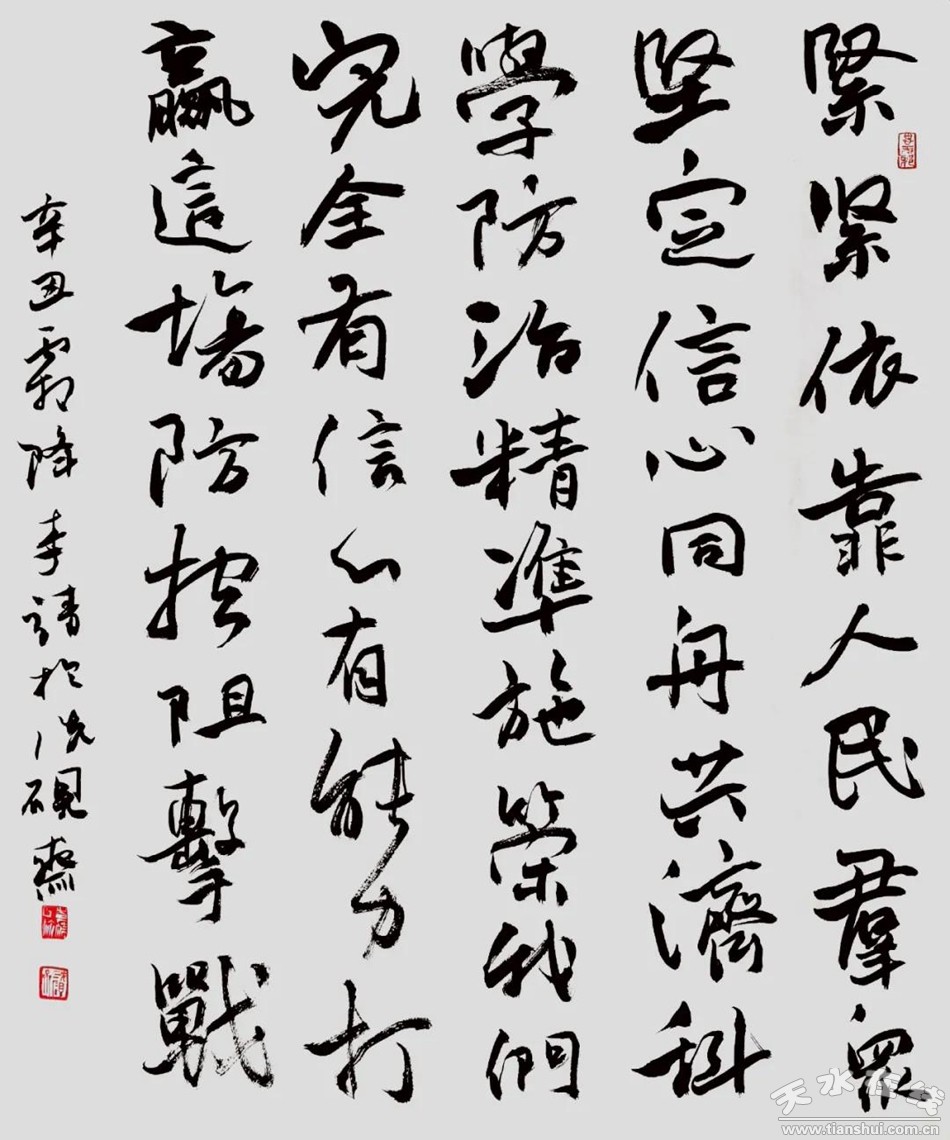 緊紧依靠人民羣眾
坚定信心同舟共濟科
學防治精凖施策我們
完全有信心有能力打
贏這場防控阻擊戰
辛丑霜降李於洗硯齋
天水在线
www.tianshui.com.cn